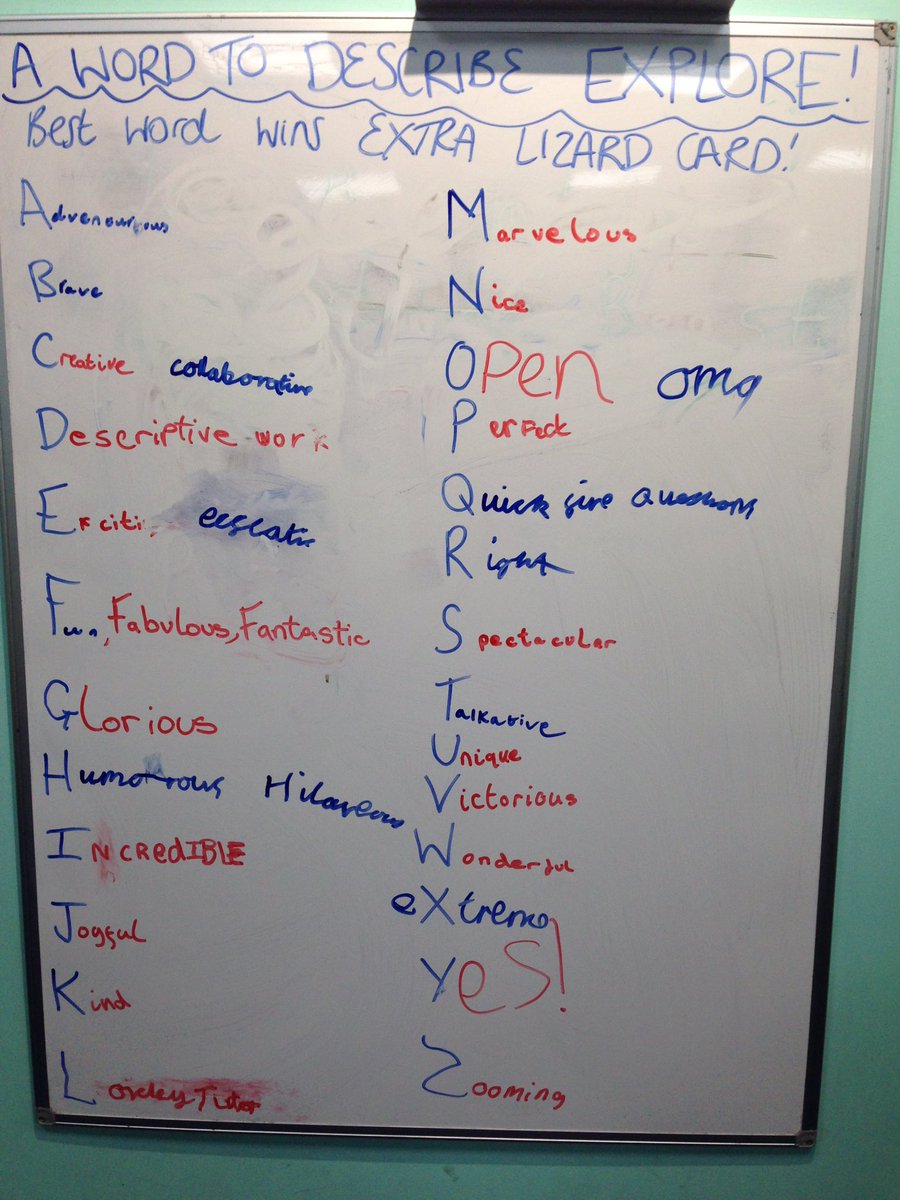 A WORD TO DESCRIBE EXPLORE!
BEST WORD WINS EXTRA LIZARD CARD!
Advenourous
Brave
Creative collaborative
Descriptive work
Exciti ecscatic
Fun, Fabulous, Fantastic
Glorious
Humorous Hilareous
INCREDIBLE
Joyful
Kind
Loveley Tutor
Marvelous
Nice
OPen omg
Perfeck
Quick fire questions
Right
Spectacular
Talkative
Unique
Victorious
Wonderful
eXtreme
Yes!
Zooming